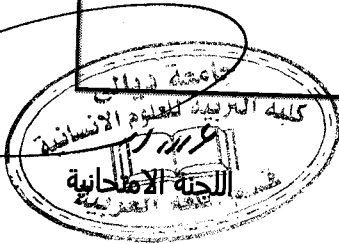 جامعة ديالى
كلية التربية للعلوم الانسانية
اللجنة الامتحانية
قسم اللغة العربية